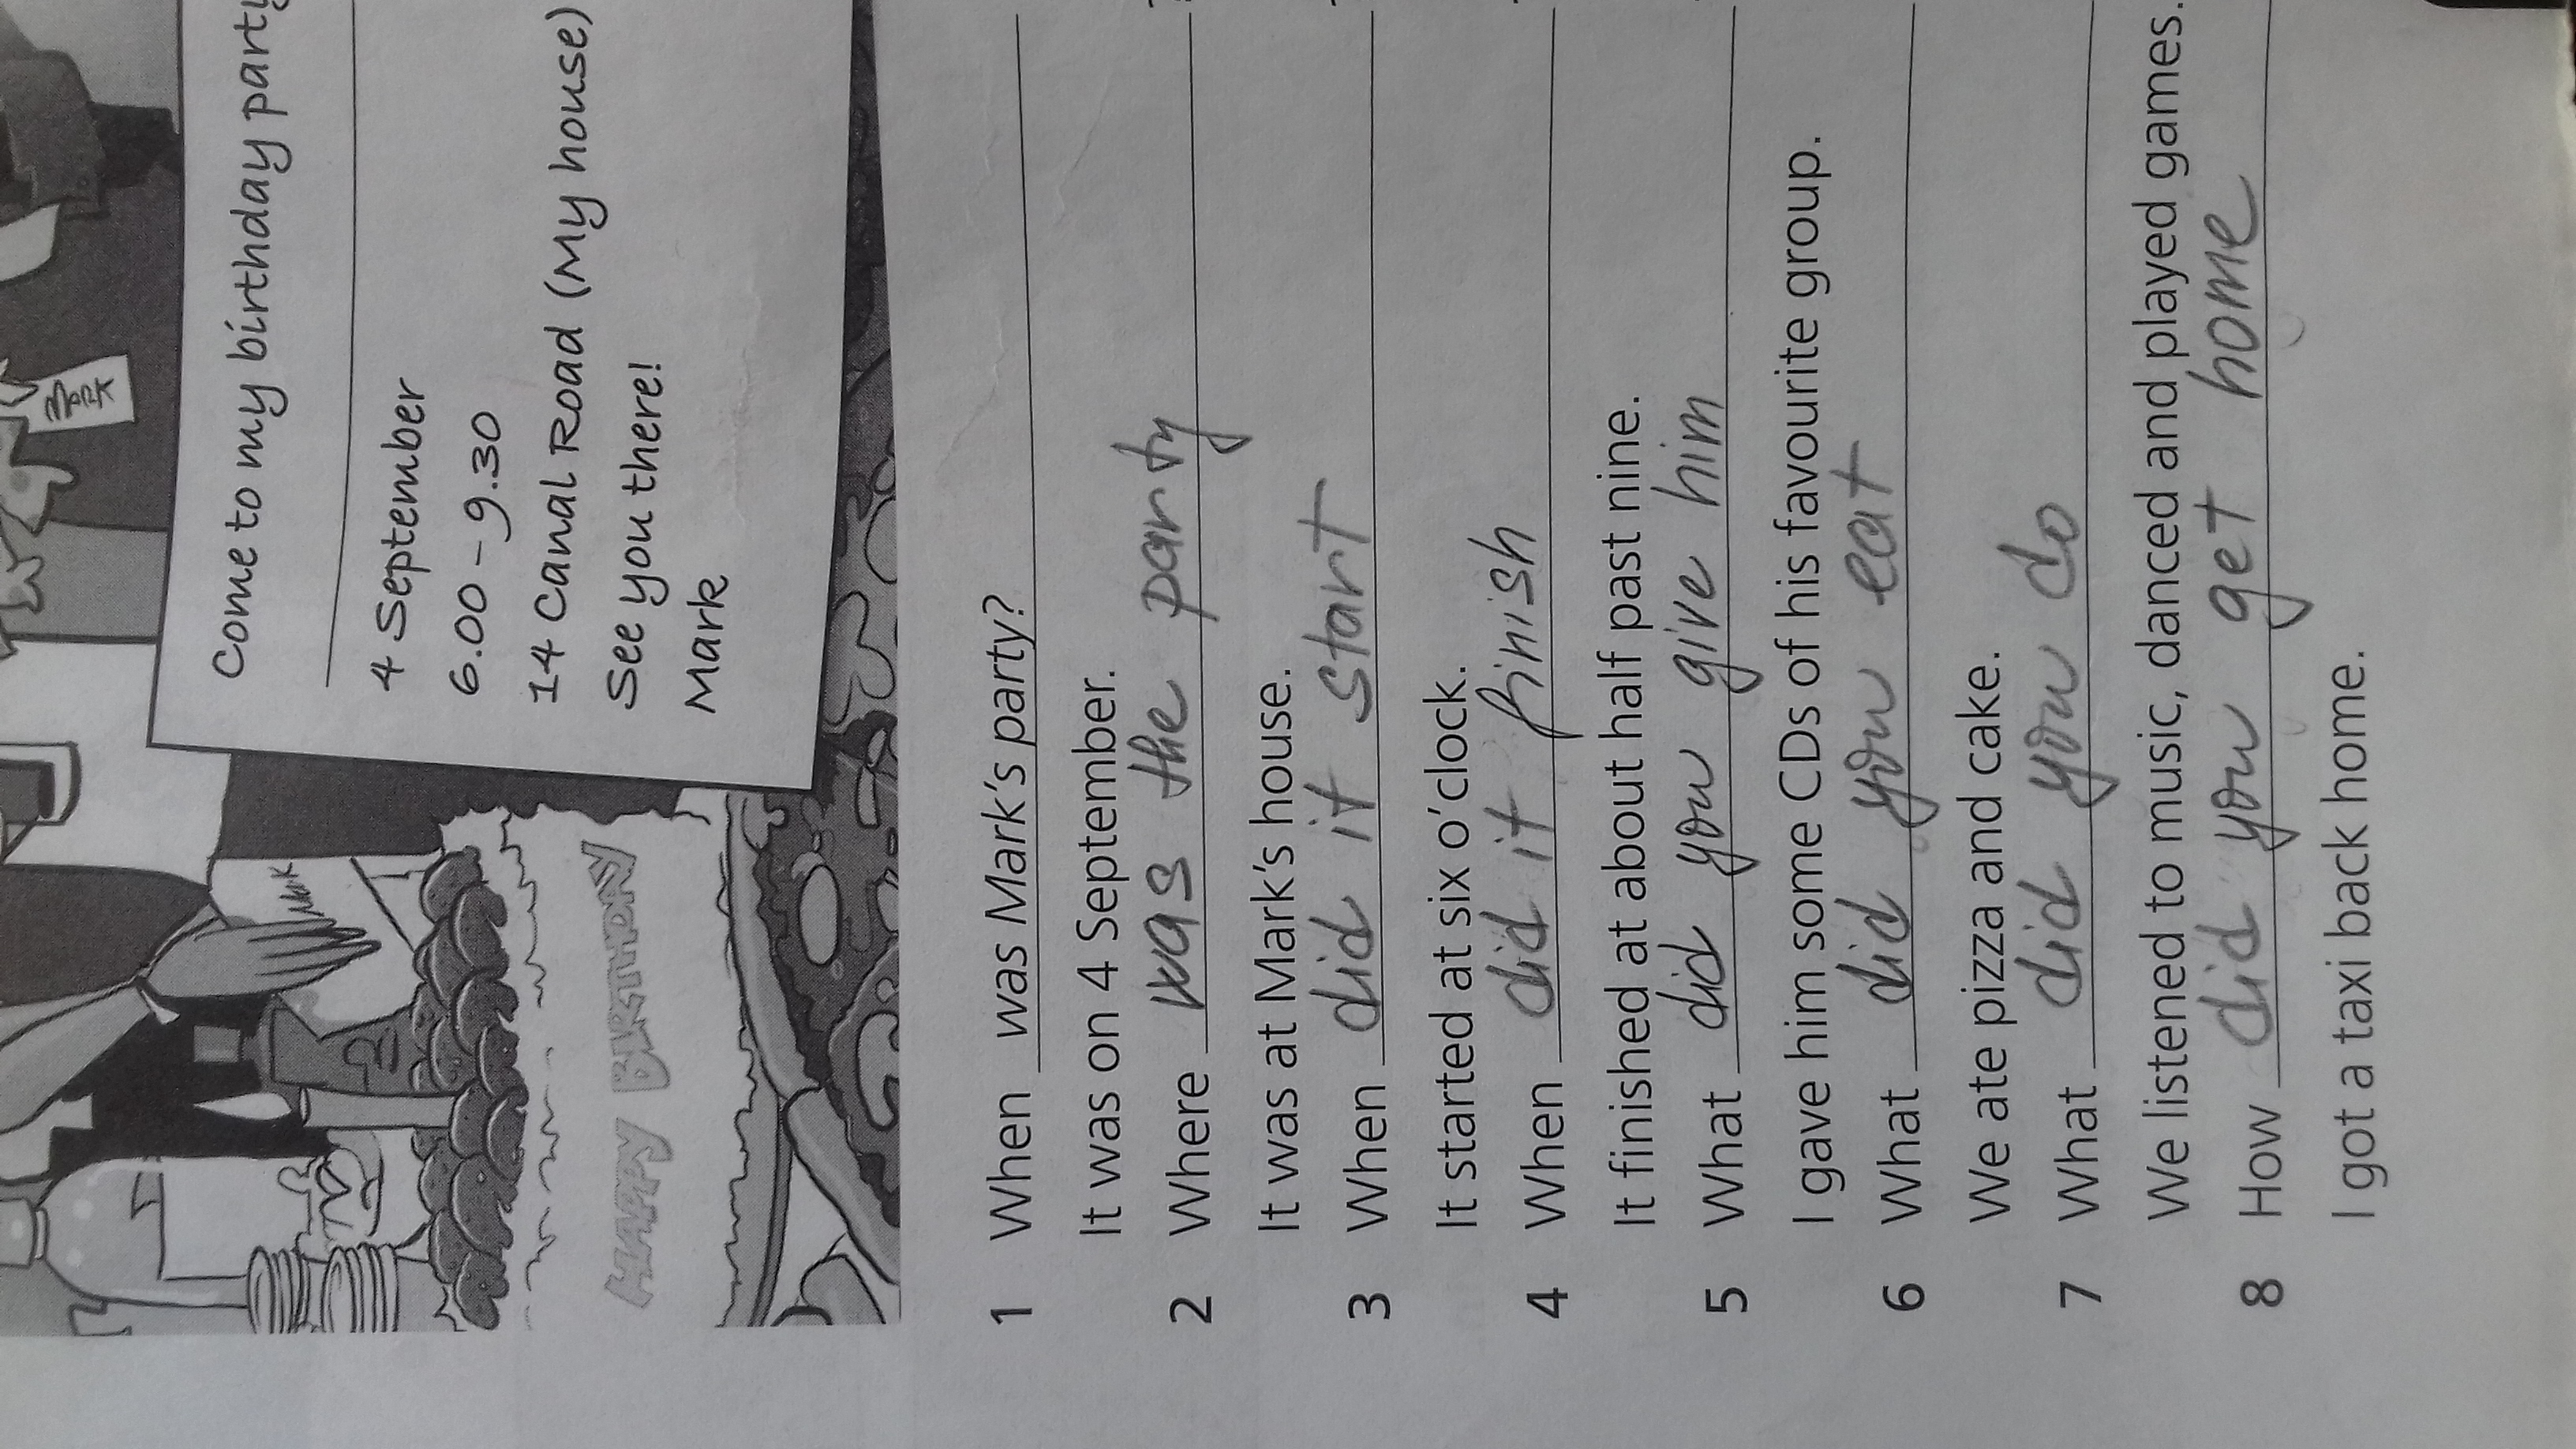 Come to my birthday party
4 September
6.00 – 9.30
14 Canal Road (My house)
See you there!
Mark
Mark
Mark
HAPPY BIRTHDAY
1 When was Mark's party?
It was on 4 September.
2 Where was the party
It was at Mark's house.
3 When did it start
It started at six o'clock.
4 When did it finish
It finished at about half past nine.
5 What did you give him
I gave him some CDs of his favourite group.
6 What did you eat
We ate pizza and cake.
7 What did you do
We listened to music, danced and played games.
8 How did you get home
I got a taxi back home.